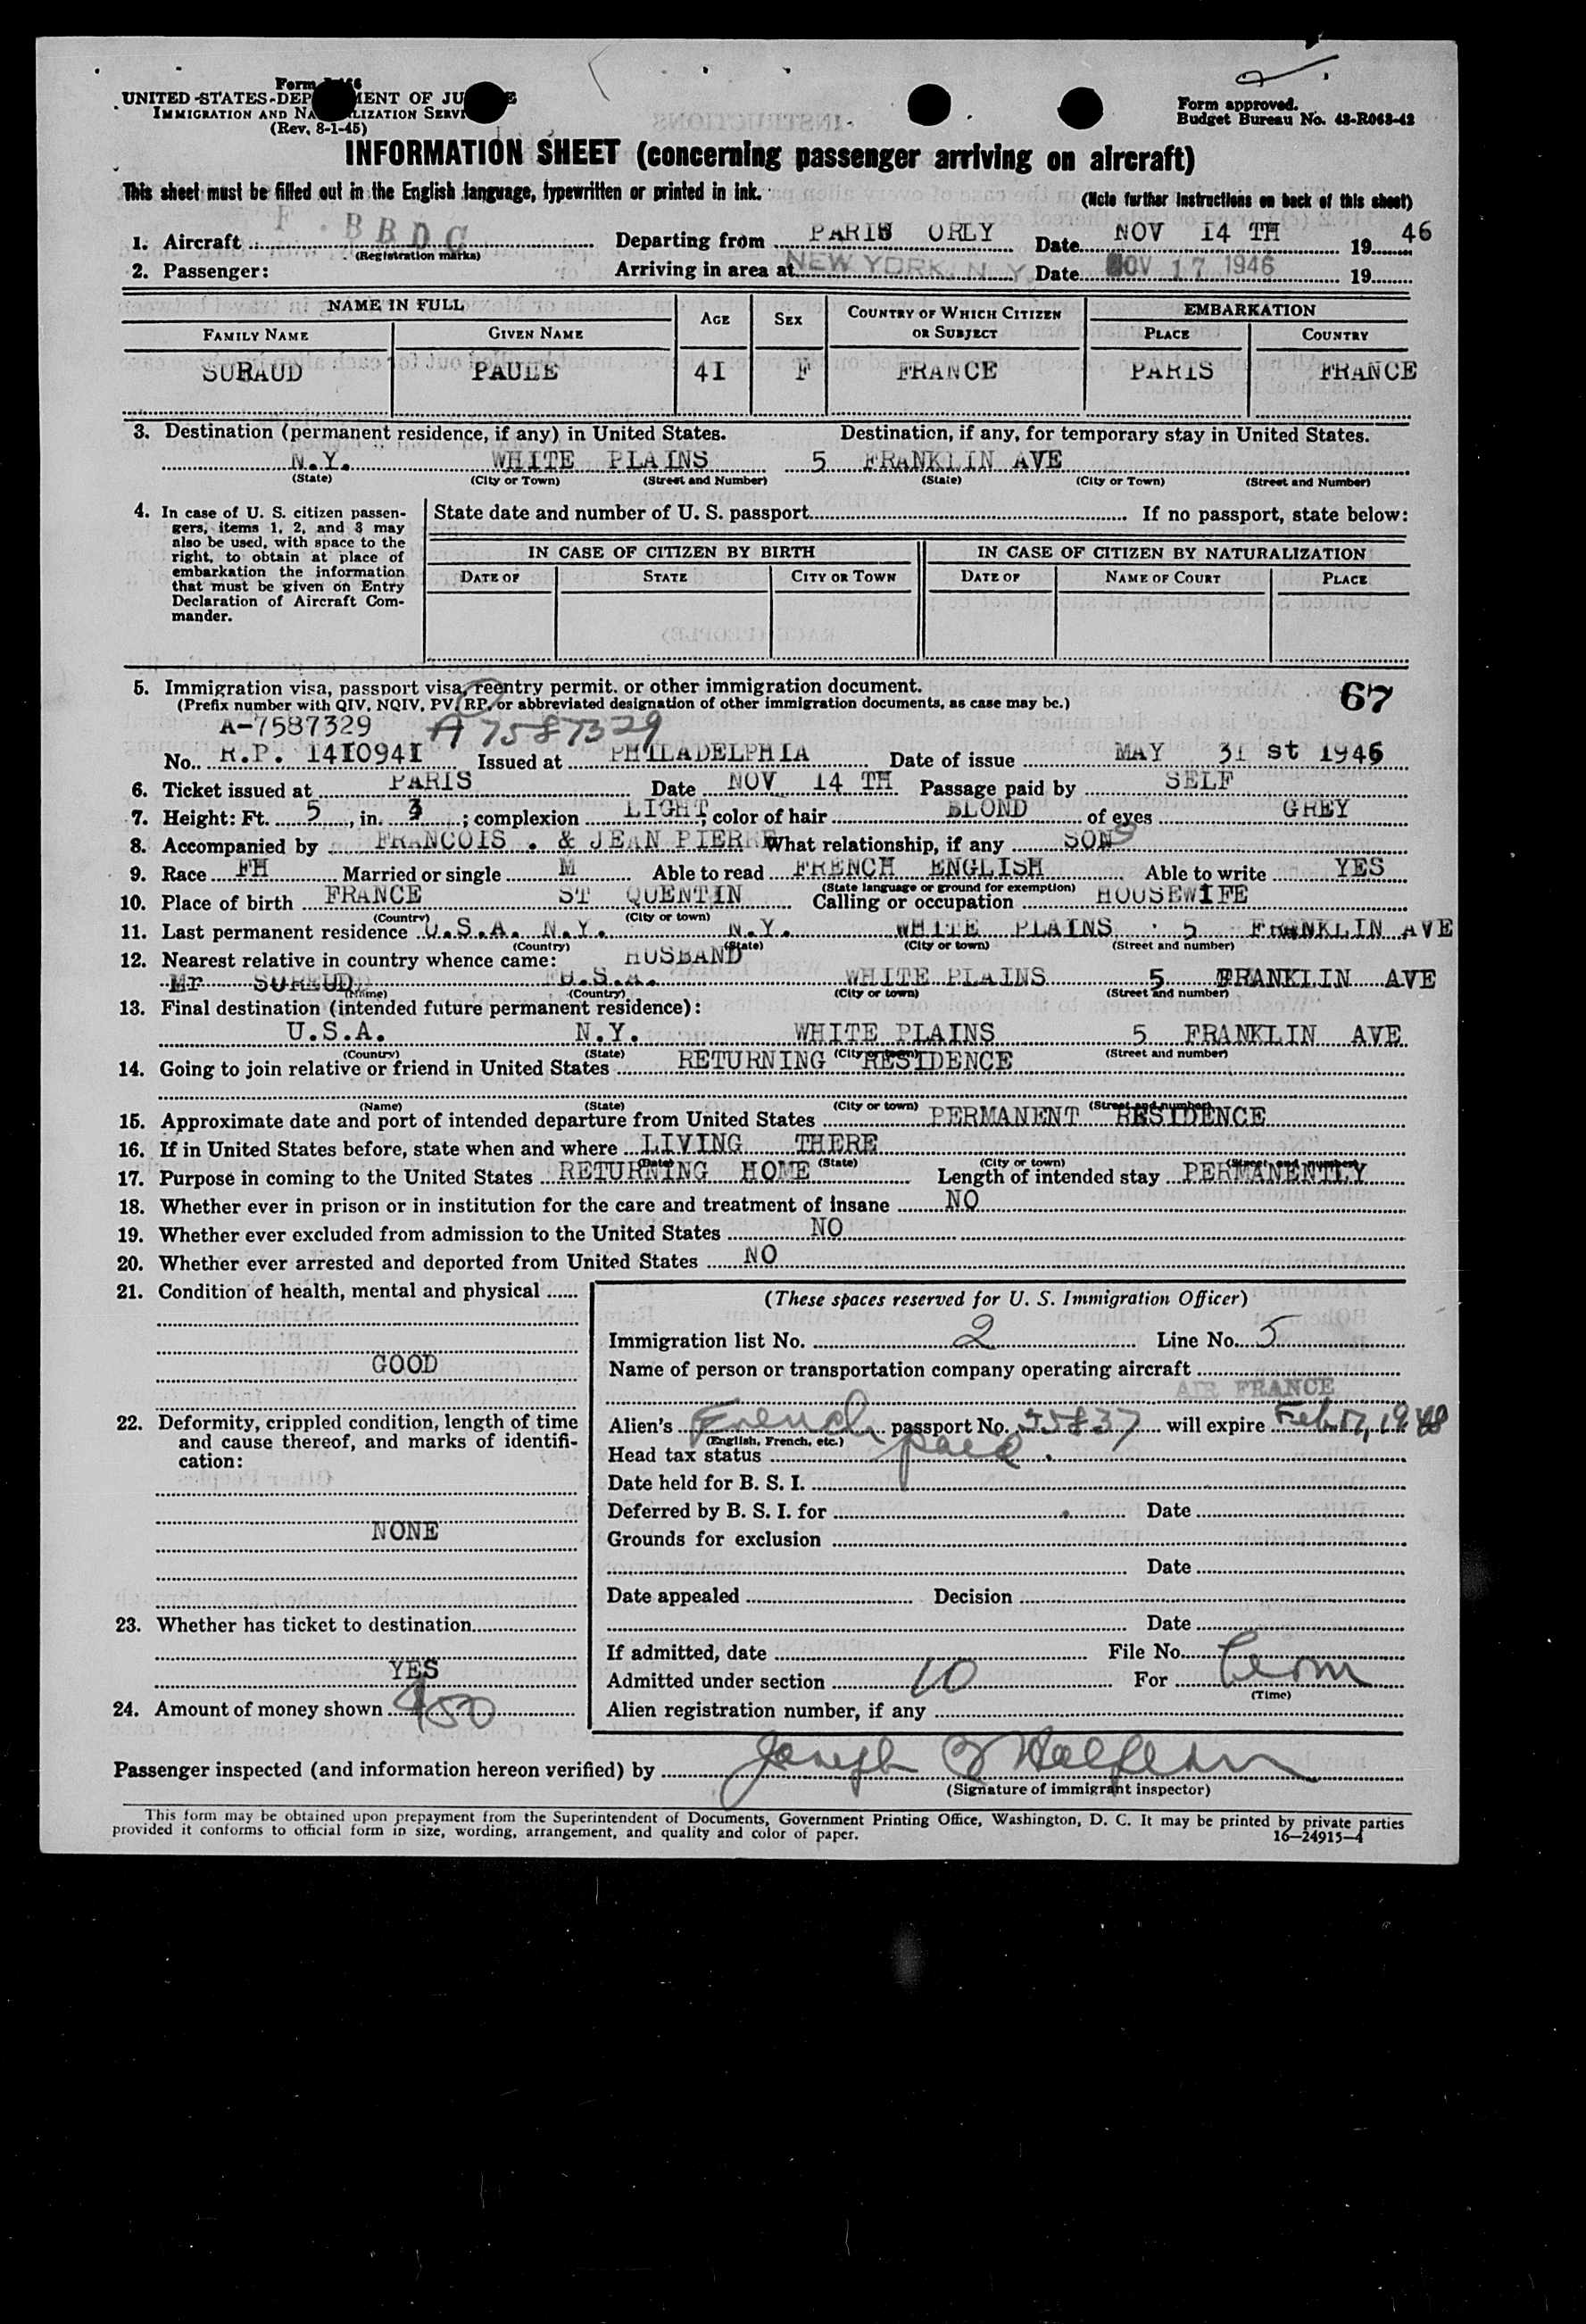 Form I-466
UNITED STATES DEPARTMENT OF JUSTICE
IMMIGRATION AND NATURALIZATION SERVICE
(Rev. 8-1-45)
Form approved.
Budget Bureau No. 43-R063-42
INFORMATION SHEET (concerning passenger arriving on aircraft)
This sheet must be filled out in the English language, typewritten or printed in ink.
(Note further instructions on back of this sheet)
1. Aircraft F. BBDG Departing from PARIS ORLY Date NOV 14 TH 19 46
(Registration marks)
2. Passenger: Arriving in area at NEW YORK, N. Y. Date NOV 17 1946 19
NAME IN FULL AGE SEX COUNTRY OF WHICH CITIZEN OR SUBJECT EMBARKATION
FAMILY NAME GIVEN NAME PLACE COUNTRY
SURAUD PAULE 4I F FRANCE PARIS FRANCE
3. Destination (permanent residence, if any) in United States. Destination, if any, for temporary stay in United States.
N.Y. WHITE PLAINS 5 FRANKLIN AVE
(State) (City or Town) (Street and Number) (State) (City or Town) (Street and Number)
4. In case of U. S. citizen passengers, items 1, 2, and 3 may also be used, with space to the right, to obtain at place of embarkation the information that must be given on Entry Declaration of Aircraft Commander.
State date and number of U. S. passport If no passport, state below:
IN CASE OF CITIZEN BY BIRTH IN CASE OF CITIZEN BY NATURALIZATION
DATE OF STATE CITY OR TOWN DATE OF NAME OF COURT PLACE
5. Immigration visa, passport visa, reentry permit, or other immigration document. 67
(Prefix number with QIV, NQIV, PV, RP, or abbreviated designation of other immigration documents, as case may be.)
A-7587329 A 7587329
No. R.P. 14I094I Issued at PHILADELPHIA Date of issue MAY 3I st 1946
6. Ticket issued at PARIS Date NOV 14 TH Passage paid by SELF
7. Height: Ft. 5, in. 3; complexion LIGHT; color of hair BLOND of eyes GREY
8. Accompanied by FRANCOIS . & JEAN PIERRE What relationship, if any SONS
9. Race FH Married or single M Able to read FRENCH ENGLISH Able to write YES
(State language or ground for exemption)
10. Place of birth FRANCE ST QUENTIN Calling or occupation HOUSEWIFE
(Country) (City or town)
11. Last permanent residence U.S.A. N.Y. N.Y. WHITE PLAINS 5 FRANKLIN AVE
(Country) (State) (City or town) (Street and number)
12. Nearest relative in country whence came: HUSBAND
Mr SURAUD U.S.A. WHITE PLAINS 5 FRANKLIN AVE
(Name) (Country) (City or town) (Street and number)
13. Final destination (intended future permanent residence):
U.S.A. N.Y. WHITE PLAINS 5 FRANKLIN AVE
(Country) (State) (City or town) (Street and number)
14. Going to join relative or friend in United States RETURNING RESIDENCE
(Name) (State) (City or town) (Street and number)
15. Approximate date and port of intended departure from United States PERMANENT RESIDENCE
16. If in United States before, state when and where LIVING THERE
(Date) (State) (City or town) (Street and number)
17. Purpose in coming to the United States RETURNING HOME Length of intended stay PERMANENTLY
18. Whether ever in prison or in institution for the care and treatment of insane NO
19. Whether ever excluded from admission to the United States NO
20. Whether ever arrested and deported from United States NO
21. Condition of health, mental and physical
GOOD
22. Deformity, crippled condition, length of time and cause thereof, and marks of identification:
NONE
23. Whether has ticket to destination
YES
24. Amount of money shown $50
(These spaces reserved for U. S. Immigration Officer)
Immigration list No. 2 Line No. 5
Name of person or transportation company operating aircraft
AIR FRANCE
Alien's French passport No. 55837 will expire Feb. 17, 1948
(English, French, etc.)
Head tax status paid
Date held for B. S. I.
Deferred by B. S. I. for Date
Grounds for exclusion
Date
Date appealed Decision
Date
If admitted, date File No.
Admitted under section 10 For Perm
(Time)
Alien registration number, if any
Passenger inspected (and information hereon verified) by Joseph
(Signature of immigrant inspector)
This form may be obtained upon prepayment from the Superintendent of Documents, Government Printing Office, Washington, D. C. It may be printed by private parties
provided it conforms to official form in size, wording, arrangement, and quality and color of paper. 16—24915-4